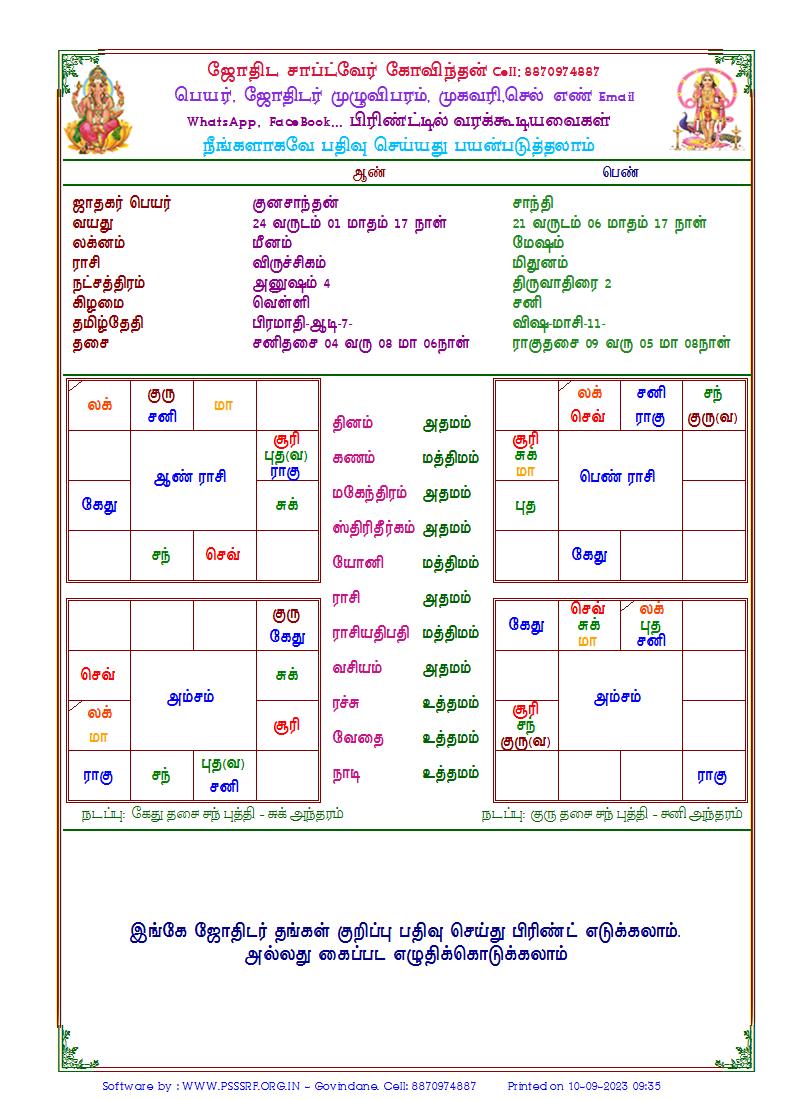 ஜோதிட சாப்ட்வேர் கோவிந்தன் Cell: 8870974887
பெயர், ஜோதிடர் முழுவிபரம், முகவரி,செல் எண் Email
WhatsApp, FaceBook... பிரிண்ட்டில் வரக்கூடியவைகள்
நீங்களாகவே பதிவு செய்யது பயன்படுத்தலாம்
ஆண் பெண்
ஜாதகர் பெயர் குனசாந்தன் சாந்தி
வயது 24 வருடம் 01 மாதம் 17 நாள் 21 வருடம் 06 மாதம் 17 நாள்
லக்னம் மீனம் மேஷம்
ராசி விருச்சிகம் மிதுனம்
நட்சத்திரம் அனுஷம் 4 திருவாதிரை 2
கிழமை வெள்ளி சனி
தமிழ்தேதி பிரமாதி-ஆடி-7- விஷு-மாசி-11-
தசை சனிதசை 04 வரு 08 மா 06நாள் ராகுதசை 09 வரு 05 மா 08நாள்
லக்
குரு
சனி
மா
சூரி
புத(வ)
ராகு
ஆண் ராசி
கேது
சுக்
சந்
செவ்
தினம் அதமம்
கணம் மத்திமம்
மகேந்திரம் அதமம்
ஸ்திரிதீர்கம் அதமம்
யோனி மத்திமம்
ராசி அதமம்
ராசியதிபதி மத்திமம்
வசியம் அதமம்
ரச்சு உத்தமம்
வேதை உத்தமம்
நாடி உத்தமம்
லக்
செவ்
சனி
ராகு
சந்
குரு(வ)
சூரி
சுக்
மா
பெண் ராசி
புத
கேது
குரு
கேது
செவ்
அம்சம்
சுக்
லக்
மா
சூரி
ராகு
சந்
புத(வ)
சனி
கேது
செவ்
சுக்
மா
லக்
புத
சனி
அம்சம்
சூரி
சந்
குரு(வ)
ராகு
நடப்பு: கேது தசை சந் புத்தி - சுக் அந்தரம்
நடப்பு: குரு தசை சந் புத்தி - சனி அந்தரம்
இங்கே ஜோதிடர் தங்கள் குறிப்பு பதிவு செய்து பிரிண்ட் எடுக்கலாம்.
அல்லது கைப்பட எழுதிக்கொடுக்கலாம்
Software by : WWW.PSSSRF.ORG.IN - Govindane. Cell: 8870974887 Printed on 10-09-2023 09:35